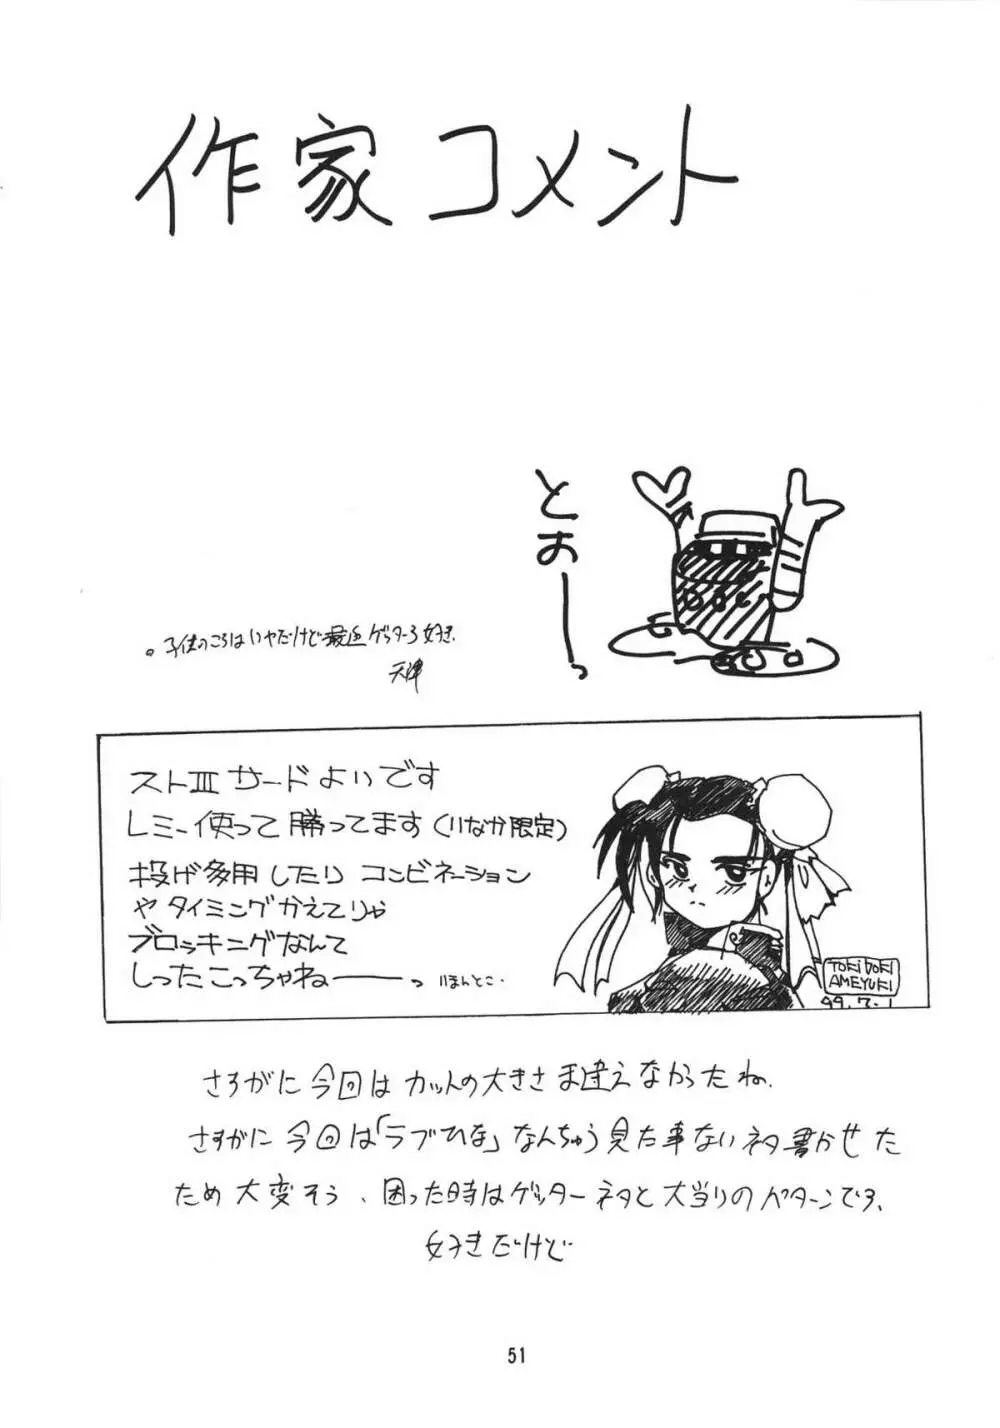 作家コメント
とおーっ
。子供のころはいやだけど最近ゲッター3好き.
天津
ストIIIサードよいです
レミー使って勝ってます(いなか限定)
投げ多用したり コンビネーション
や タイミングかえてりゃ
ブロッキングなんて
しったこっちゃねーーっ ほんとこ.
TOKIDOKI
AMEYUKI
99.7.1
さすがに今回はカットの大きさま違えなかったね.
さすがに今回は「ラブひな」なんちゅう見た事ないネタ書かせた
ため大変そう、困った時はゲッターネタと大当りのパターンです.
好きだけど
51